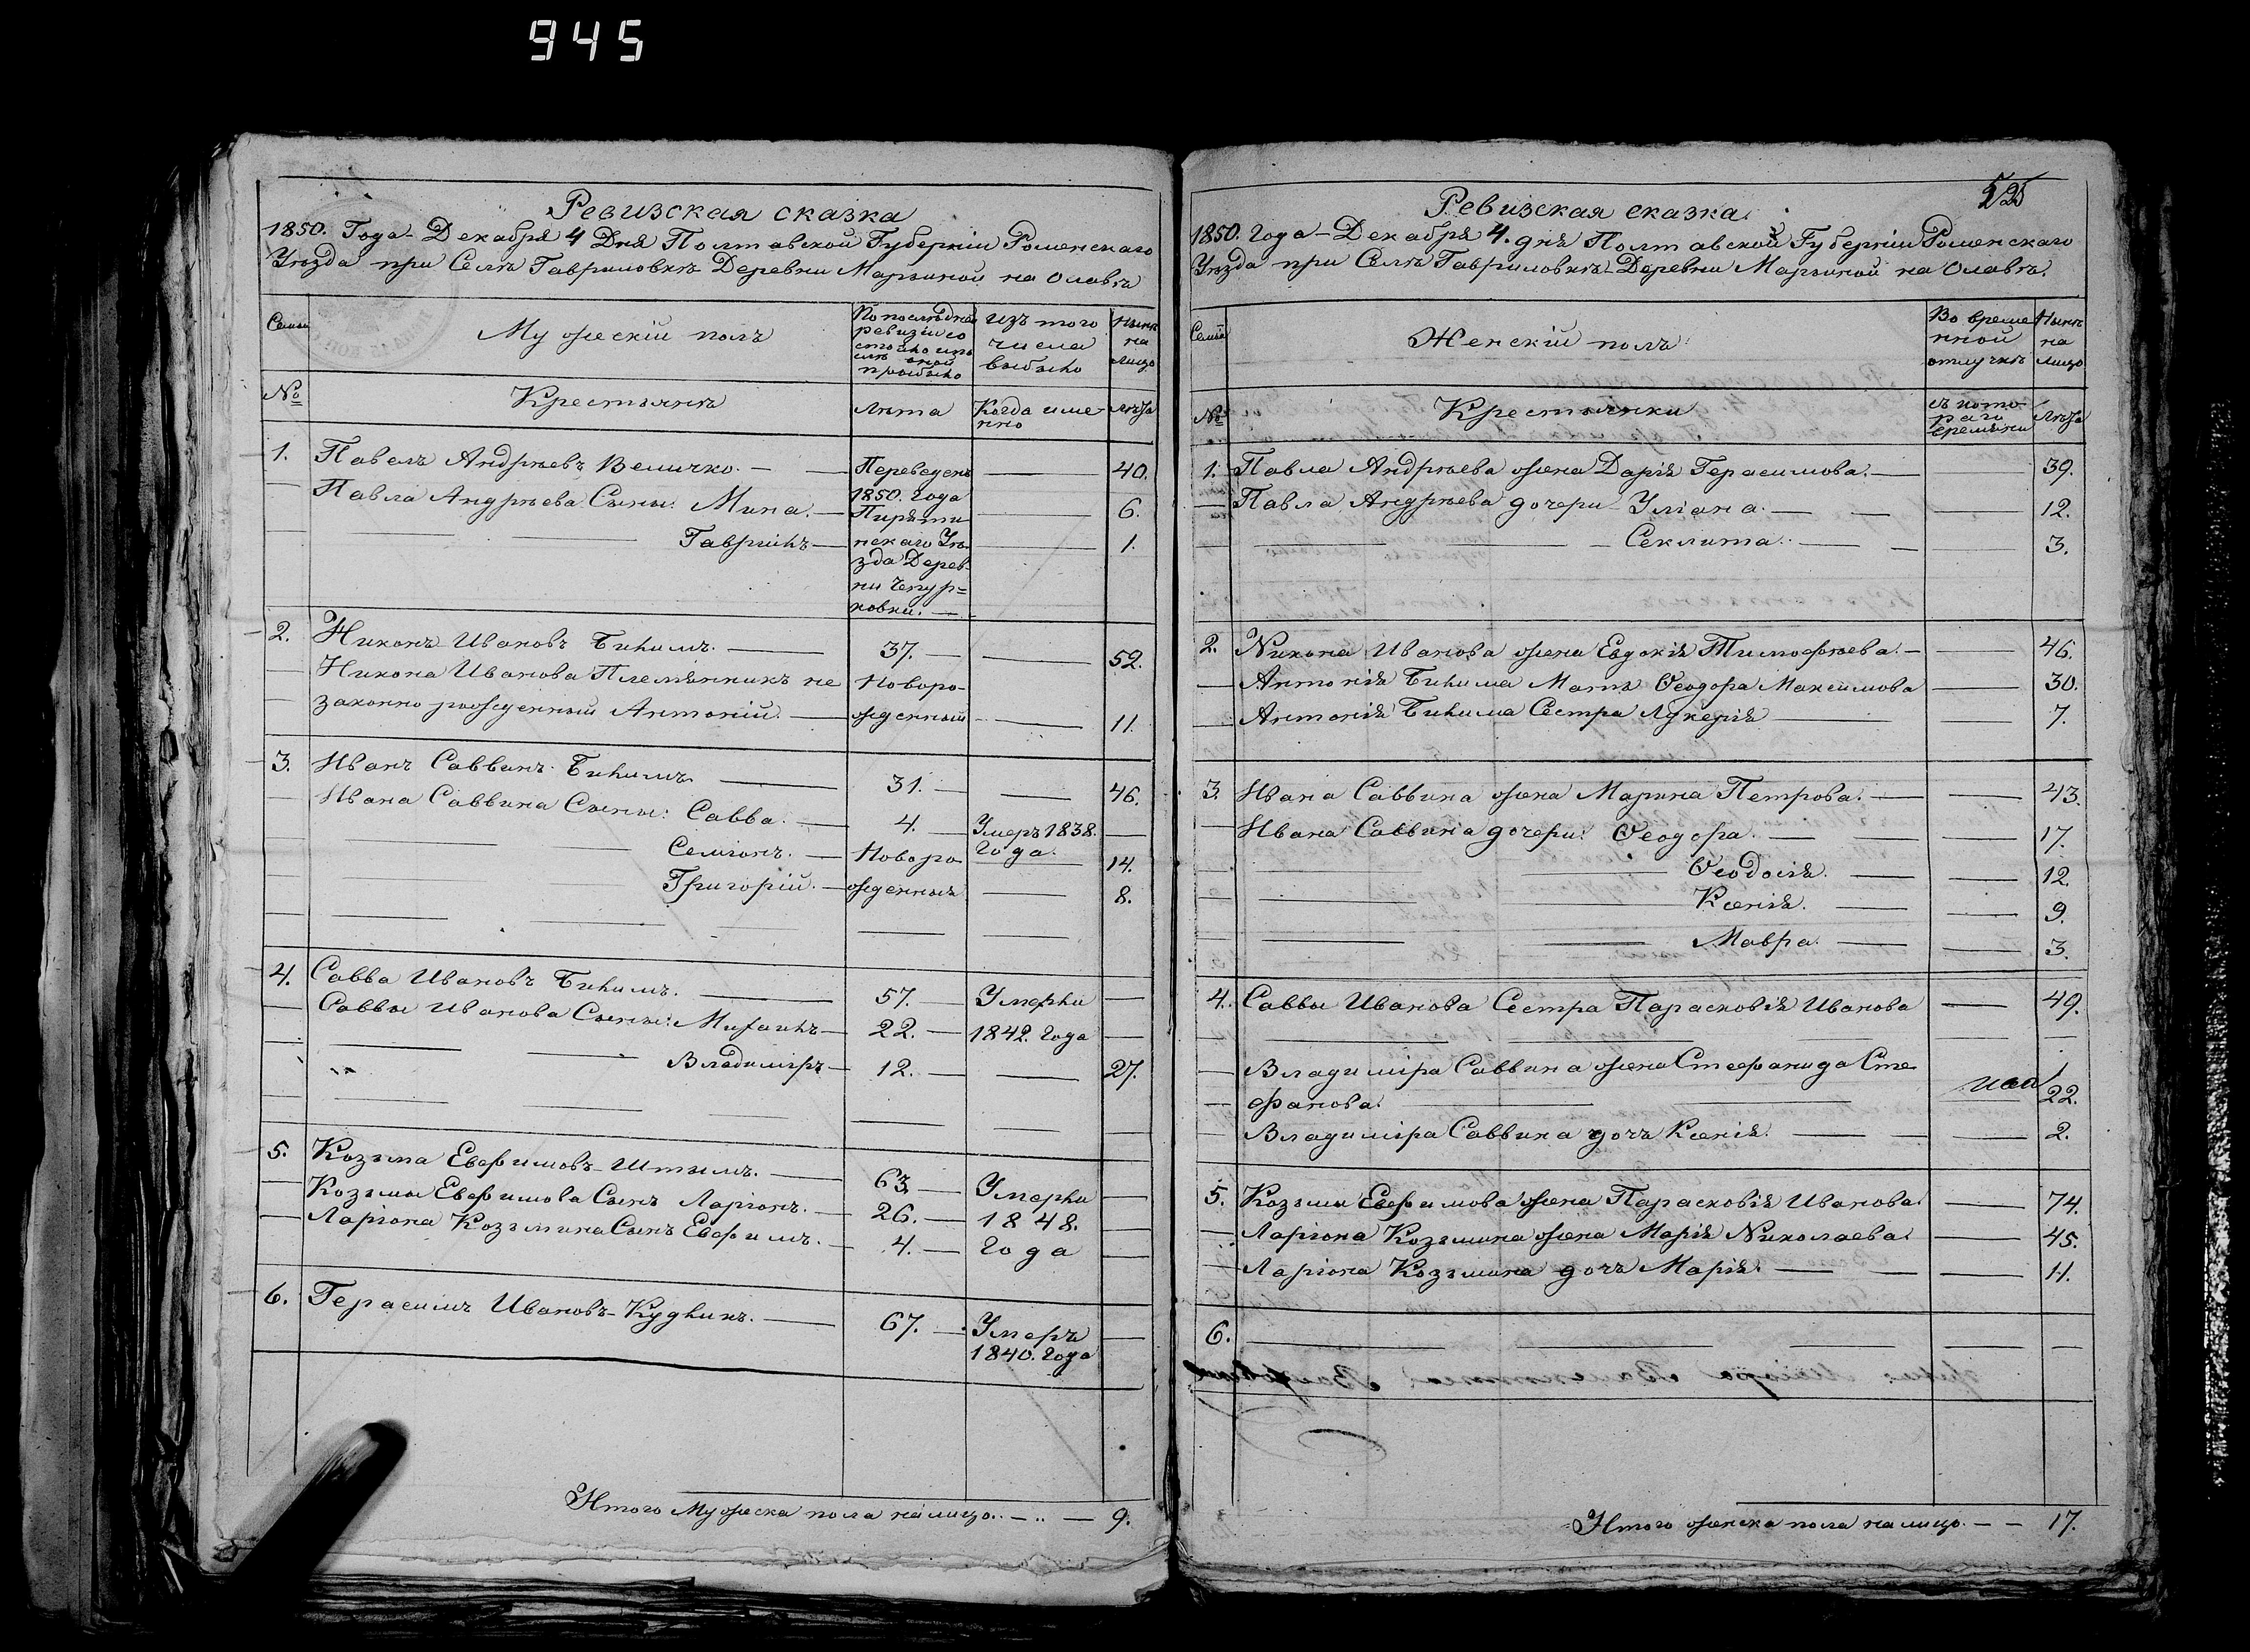 945
Ревизская сказка
1850. Года - Декабря 4 Дня Полтавской Губерніи Роменскаго
Уѣзда при Селѣ Гавриловкѣ Деревни Марьиной на Олавѣ
Семьи
Мужескій полъ
По послѣдней ревизіи состояло или послѣ оной прибыло
Изъ того числа выбыло
Нынѣ на лицо
№
Крестьянѣ
Лѣта
Когда именно
Лѣта
1. Павелъ Андрѣевъ Величко. — Переведенъ — 40.
Павла Андрѣева Сыны: Мина. — 1850. Года — 6.
Гавріилъ — Пиряти — 1.
нскаго Уѣ
зда Дерев-
ни Чепур=
ковки. —
2. Никонъ Ивановъ Бихимъ. — 37. — 52.
Никона Иванова Племянникъ не Новоро-
законно рожденный Антоній. — жденный — 11.
3. Иванъ Саввинъ Бихимъ — 31. — 46.
Ивана Саввина Сыны: Савва. — 4. — Умеръ 1838. Года. —
Семіонъ. — Новоро — 14.
Григорій. — жденныя — 8.
4. Савва Ивановъ Бихимъ. — 57. — Умерли —
Саввы Иванова Сыны: Михаилъ — 22. — 1842. Года —
Владиміръ — 12. — 27.
5. Козьма Евфимовъ Штымъ. — 63. — Умерли —
Козьмы Евфимова Сынъ Ларіонъ. — 26. — 1848. —
Ларіона Козьмина Сынъ Евфимъ. — 4. — Года —
6. Герасимъ Ивановъ Кудлинъ. — 67. — Умеръ —
1840. Года
Итого Мужеска пола на лицо. — 9.
525
Ревизская сказка.
1850. Года - Декабря 4. дня Полтавской Губерніи Роменскаго
Уѣзда при Селѣ Гавриловкѣ - Деревни Марьиной на Олавѣ.
Семьи
Женскій полъ
Во временной отлучкѣ
Нынѣ на лицо
№
Крестьянки
съ котораго времѣни
Лѣта
1. Павла Андрѣева жена Дарія Герасимова. — 39.
Павла Андрѣева дочери Уліана. — 12.
Секлита. — 3.
2. Никона Иванова жена Евдокія Тимофѣева. — 46.
Антонія Бихима Мать Ѳеодора Максимова — 30.
Антонія Бихима Сестра Лукерія — 7.
3. Ивана Саввина жена Марина Петрова. — 43.
Ивана Саввина дочери: Ѳеодора. — 17.
Ѳеодосія. — 12.
Ксенія. — 9.
Мавра. — 3.
4. Саввы Иванова Сестра Парасковія Иванова — 49.
Владиміра Саввина жена Стефанида Сте-
фанова. — 22.
Владиміра Саввина дочь Ксенія. — 2.
5. Козьмы Евфимова жена Парасковія Иванова. — 74.
Ларіона Козьмина жена Марія Николаева. — 45.
Ларіона Козьмина дочь Марія. — 11.
6. —
Итого женска пола на лицо. — — 17.